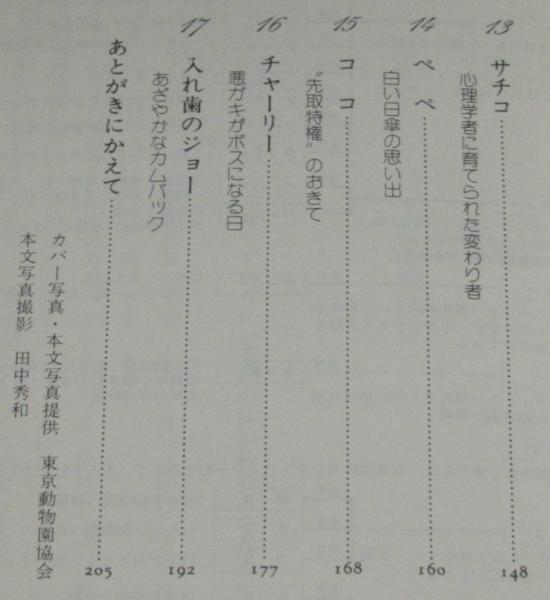 13 サチコ……148
心理学者に育てられた変わり者
14 ペペ……160
白い日傘の思い出
15 ココ……168
“先取特権”のおきて
16 チャーリー……177
悪ガキがボスになる日
17 入れ歯のジョー……192
あざやかなカムバック
あとがきにかえて……205
カバー写真・本文写真提供 東京動物園協会
本文写真撮影 田中秀和